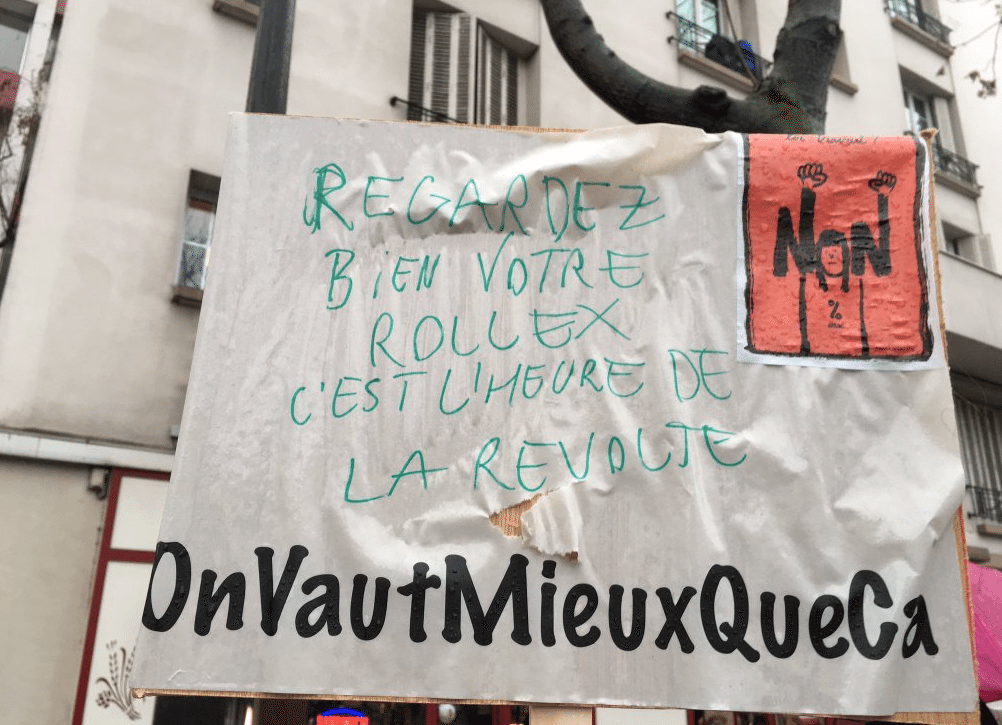 REGARDEZ
BIEN VOTRE
ROLLEX
C'EST L'HEURE DE
LA REVOLTE
OnVautMieuxQueCa
NON
%